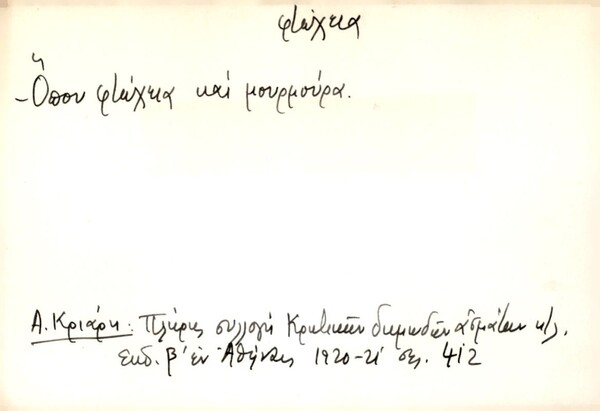 φτώχεια
- Ὅπου φτώχεια καί μουρμούρα.
Α. Κριάρη: Πλήρης συλλογή Κρητικῶν δημωδῶν ἀσμάτων κτλ.
Εκδ. β' ἐν Ἀθήναις 1920-21 σελ. 412